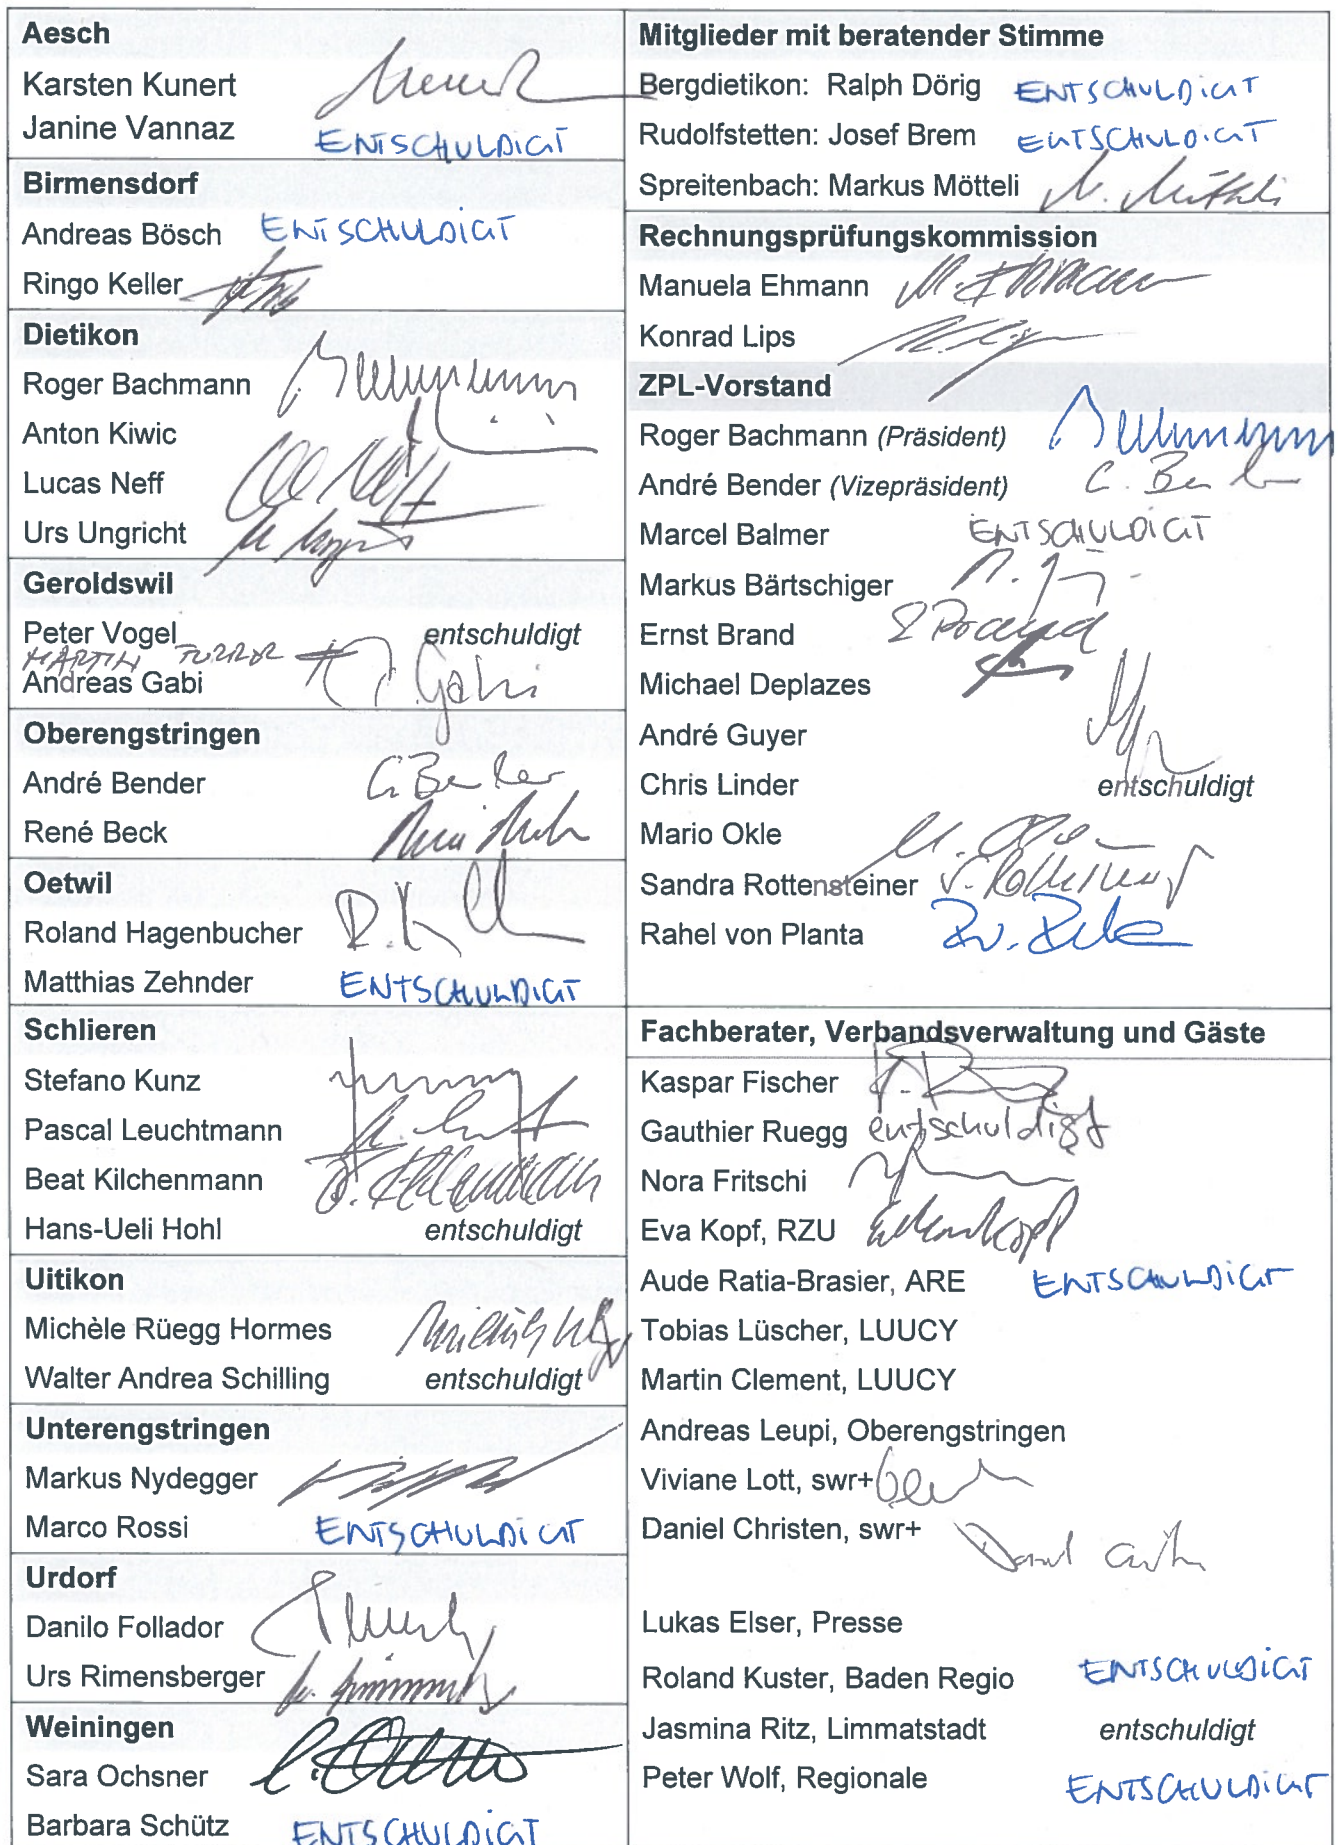 Aesch
Karsten Kunert
Janine Vannaz ENTSCHULDIGT
Birmensdorf
Andreas Bösch ENTSCHULDIGT
Ringo Keller
Dietikon
Roger Bachmann
Anton Kiwic
Lucas Neff
Urs Ungricht
Geroldswil
Peter Vogel entschuldigt
MARTIN
Andreas Gabi
Oberengstringen
André Bender
René Beck
Oetwil
Roland Hagenbucher
Matthias Zehnder ENTSCHULDIGT
Schlieren
Stefano Kunz
Pascal Leuchtmann
Beat Kilchenmann
Hans-Ueli Hohl entschuldigt
Uitikon
Michèle Rüegg Hormes
Walter Andrea Schilling entschuldigt
Unterengstringen
Markus Nydegger
Marco Rossi ENTSCHULDIGT
Urdorf
Danilo Follador
Urs Rimensberger
Weiningen
Sara Ochsner
Barbara Schütz ENTSCHULDIGT
Mitglieder mit beratender Stimme
Bergdietikon: Ralph Dörig ENTSCHULDIGT
Rudolfstetten: Josef Brem ENTSCHULDIGT
Spreitenbach: Markus Mötteli M. Mötteli
Rechnungsprüfungskommission
Manuela Ehmann M. Ehmann
Konrad Lips
ZPL-Vorstand
Roger Bachmann (Präsident)
André Bender (Vizepräsident)
Marcel Balmer ENTSCHULDIGT
Markus Bärtschiger
Ernst Brand E Brand
Michael Deplazes
André Guyer
Chris Linder entschuldigt
Mario Okle
Sandra Rottensteiner
Rahel von Planta
Fachberater, Verbandsverwaltung und Gäste
Kaspar Fischer
Gauthier Ruegg entschuldigt
Nora Fritschi
Eva Kopf, RZU
Aude Ratia-Brasier, ARE ENTSCHULDIGT
Tobias Lüscher, LUUCY
Martin Clement, LUUCY
Andreas Leupi, Oberengstringen
Viviane Lott, swr+
Daniel Christen, swr+
Lukas Elser, Presse
Roland Kuster, Baden Regio ENTSCHULDIGT
Jasmina Ritz, Limmatstadt entschuldigt
Peter Wolf, Regionale ENTSCHULDIGT